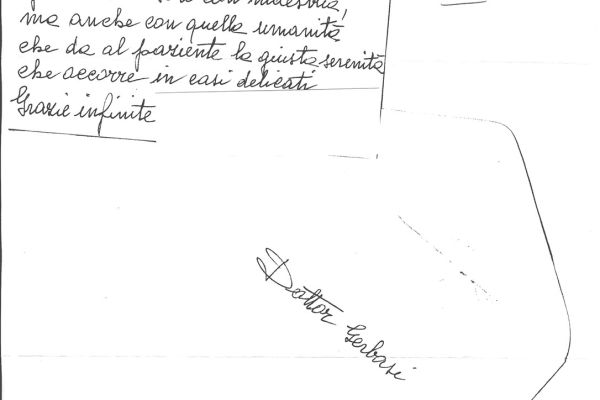 con maestria,
ma anche con quella umanità
che da al paziente la giusta serenità
che occorre in casi delicati
Grazie infinite
Dottor Gerbasi